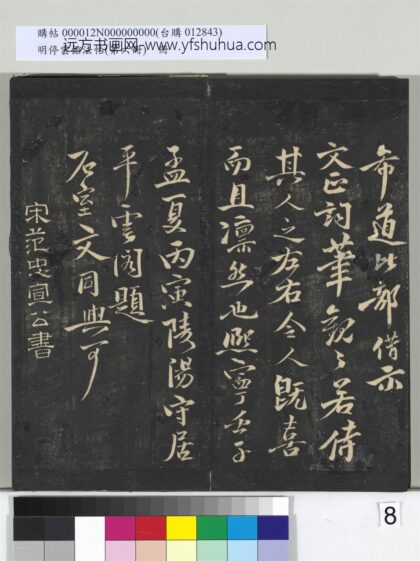 購帖 000012N000000000(台購 012843)
远方书画网-www.yfshuhua.com
明停雲館法帖
希道比部借示
文正詞筆觀之若侍
其人之左右令人既喜
而且凜然也熙寧壬子
孟夏丙寅陵陽守居
平雲閣題
石室文同與可
宋范忠宣公書
8